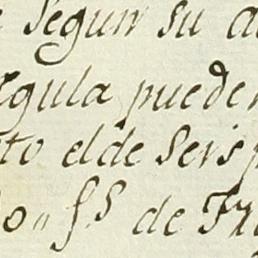 e Segun su a
egula pueden
to elde Seis p
0,, f.s de Fra